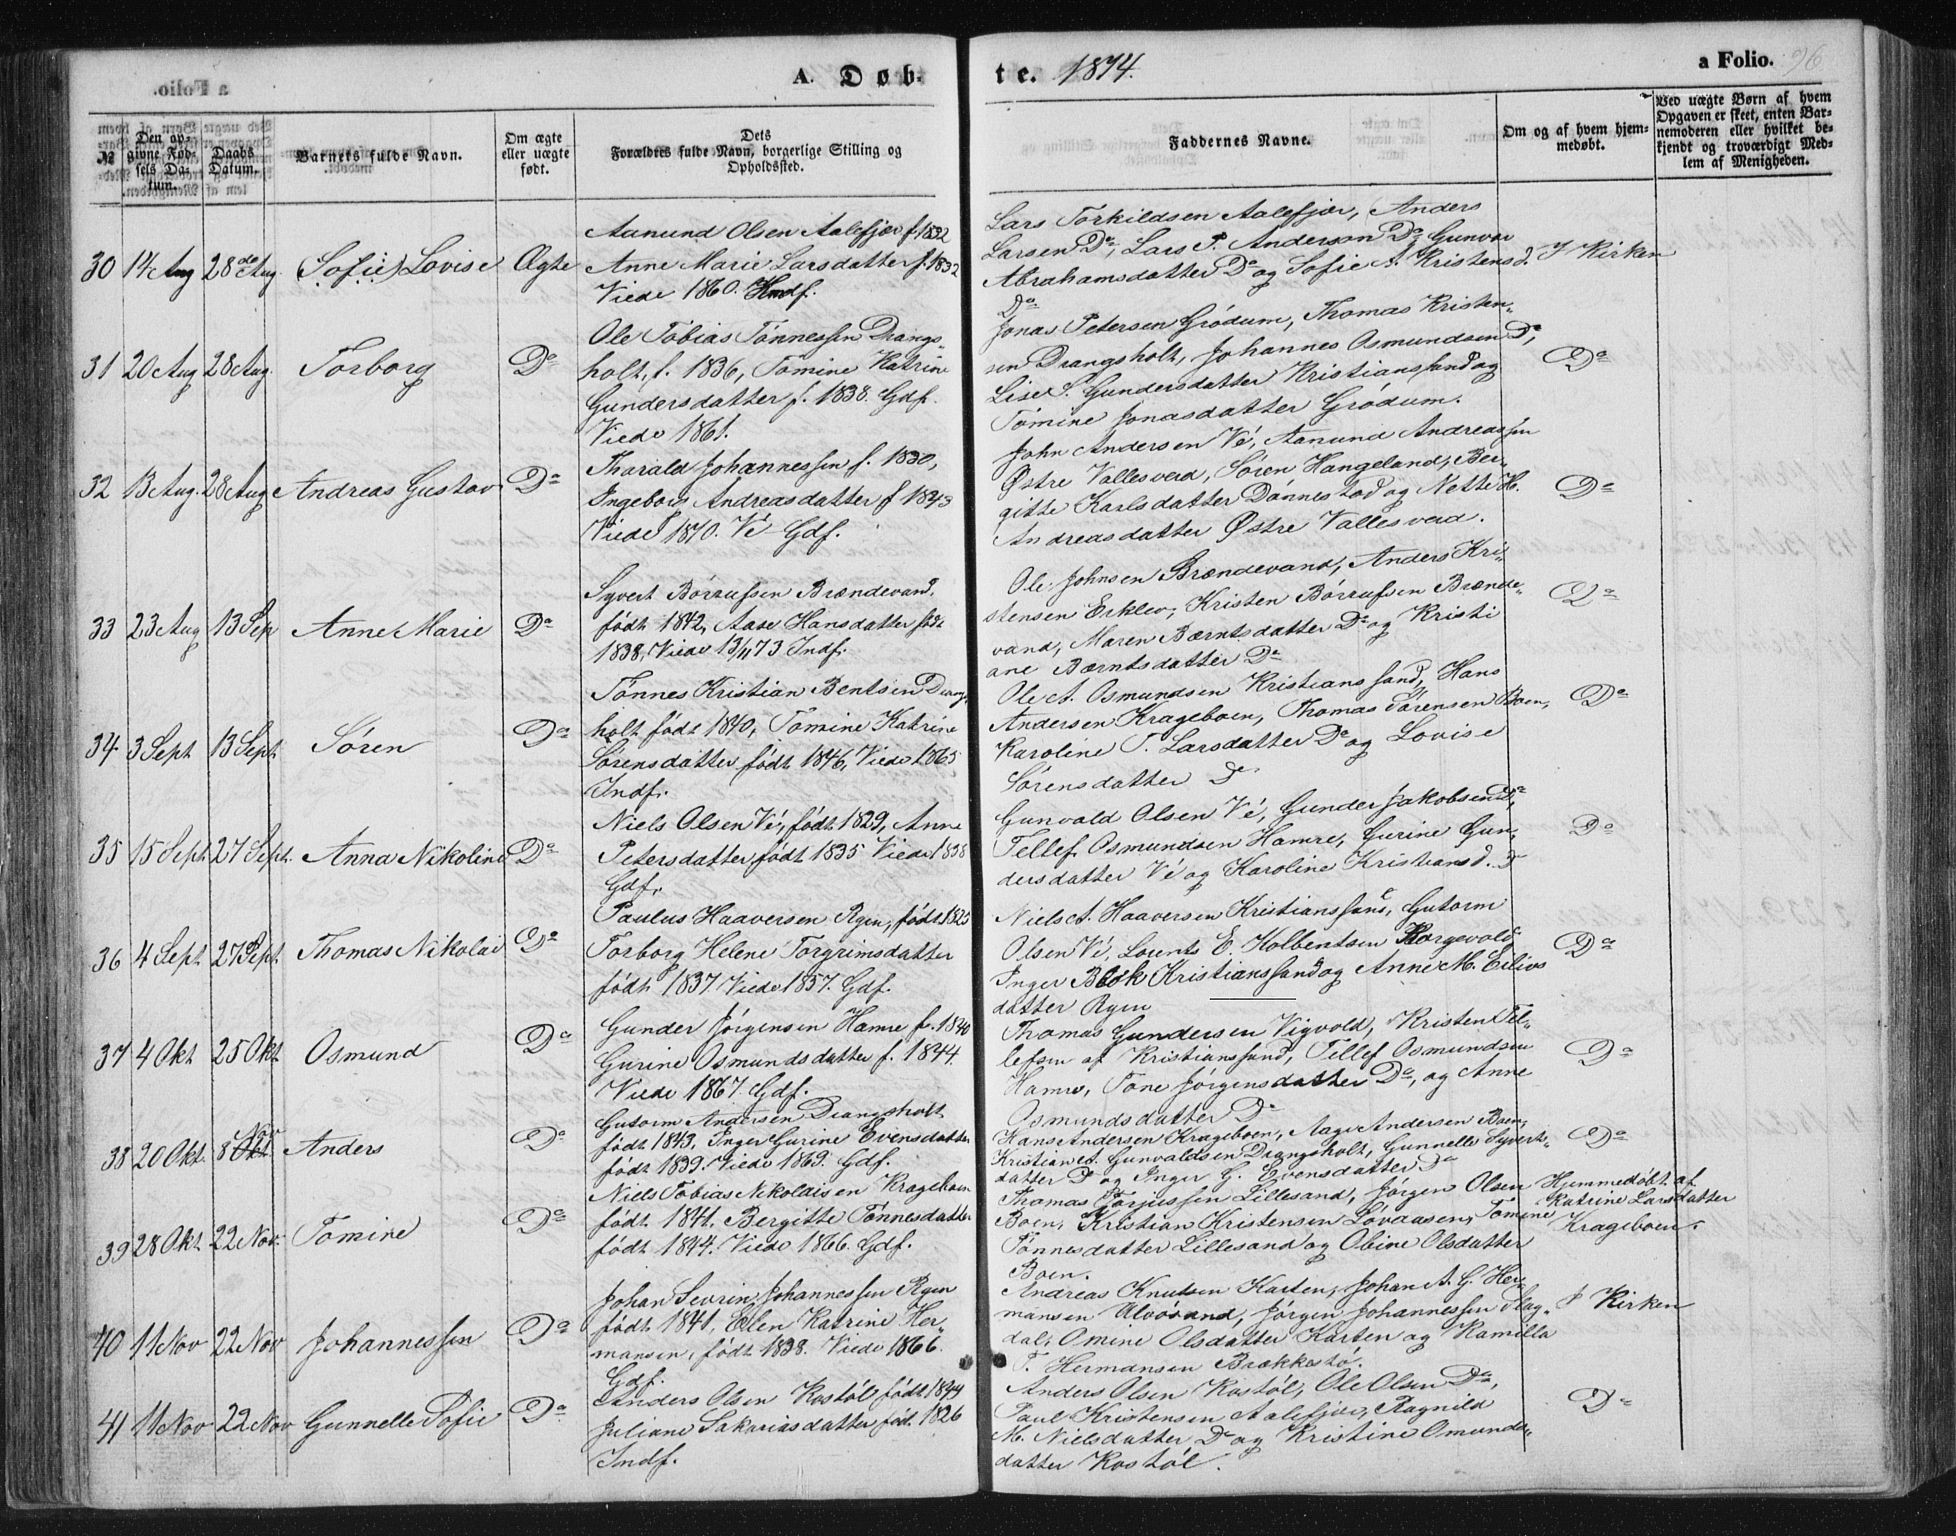 A. Døb-
te. 1874.
a Folio. 96
№
Den opgivne Fødsels Datum.
Daabs Datum.
Barnets fulde Navn.
Om ægte eller uægte født.
Dets Forældres fulde Navn, borgerlige Stilling og Opholdssted.
Faddernes Navne.
Om og af hvem hjemmedøbt.
Ved uægte Børn af hvem Opgaven er skeet, enten Barnemoderen eller hvilket bekjendt og troværdigt Medlem af Menigheden.
30 14 Aug 28de Aug. Sofie Lovise Ægte
Aanund Olsen Aalefjær f. 1832
Anne Marie Larsdatter f. 1832
Viede 1860. Hmdf.
Lars Torkildsen Aalefjær, Anders
Larsen Do, Lars P. Anderson Do, Gunvor
Abrahamsdatter Do og Sofie A. Kristensd.
Do
I Kirken
31 20 Aug 28 Aug. Torborg Do
Ole Tobias Tønnessen Drangs-
holt, f. 1836, Tomine Katrine
Gundersdatter f. 1838. Gdf.
Viede 1861.
Jonas Petersen Grødum, Thomas Kristen-
sen Drangsholt, Johannes Osmundsen Do,
Lise S. Gundersdatter Kristianssand og
Tomine Jonasdatter Grødum.
Do
32 13 Aug. 28 Aug Andreas Gustav Do
Tharald Johannessen f. 1830,
Ingeborg Andreasdatter f 1843
Viede 1870. Vé Gdf.
John Andersen Vé, Aanund Andreassen
Østre Vallesverd, Søren Hangeland, Ber-
gitte Karlsdatter Dønnestad og Nette H.
Andreasdatter Østre Vallesverd.
Do
33 23 Aug 13 Sep Anne Marie Do
Syvert Børrufsen Brændevand,
født 1842, Aase Hansdatter født
1838, Viede 13/4 73 Indf.
Ole Johnsen Brændevand, Anders Kri-
stensen Erklev, Kristen Børrufsen Brænde-
vand, Maren Bærntsdatter Do og Kristi
ane Bærntsdatter Do
Do
34 3 Sept 13 Sept. Søren Do
Tønnes Kristian Bentsen Drangs-
holt født 1840, Tomine Katrine
Sørensdatter født 1846, Viede 1865
Indf.
Ole A. Osmundsen Kristianssand, Hans
Andersen Krageboen, Thomas Sørensen Boen,
Karoline T. Larsdatter Do og Lovise
Sørensdatter Do
Do
35 15 Sept. 27 Sept. Anna Nikoline Do
Niels Olsen Vé, født 1829, Anne
Petersdatter født 1835 Viede 1858
Gdf.
Gunvald Olsen Vé, Gunder Jakobsen Do,
Tellef Osmundsen Hamre, Gurine Gun-
dersdatter Vé og Karoline Kristiansd. Do
Do
36 4 Sept. 27 Sept. Thomas Nikolai Do
Paulus Haaversen Ryen, født 1825
Torborg Helene Torgrimsdatter
født 1837 Viede 1857. Gdf.
Niels A. Haaversen Kristianssand, Gutorm
Olsen Vé, Lorents E. Kolbentsen Korgevold
Inger Blok Kristianssand og Anne M. Eilivs
datter Ryen
Do
37 4 Okt 25 Okt Osmund Do
Gunder Jørgensen Hamre f. 1840
Gurine Osmundsdatter f. 1844.
Viede 1867. Gdf.
Thomas Gundersen Vigvold, Kristen Tel-
lefsen af Kristianssand, Tellef Osmundsen
Hamre, Tone Jørgensdatter Do, og Anne
Osmundsdatter Do
Do
38 20 Okt. 8 Nov Anders Do
Gutorm Andersen Drangsholt
født 1843, Inger Gurine Evensdatter
født 1839. Viede 1869. Gdf.
Hans Andersen Krageboen, Aage Andersen Boen,
Kristian A. Gunvaldsen Drangsholt, Gunnelle Syverts-
datter Do og Inger G. Evensdatter Do
Do
39 28 Okt. 22 Nov. Tomine Do
Niels Tobias Nikolaisen Krageboen
født 1841. Bergitte Tønnesdatter
født 1844. Viede 1866. Gdf.
Thomas Torjussen Lillesand, Jørgen Olsen
Boen, Kristian Kristensen Løvaasen, Tomine
Tønnesdatter Lillesand og Oline Olsdatter
Boen.
Hjemmedøbt af
Katrine Larsdatter
Krageboen.
40 11 Nov 22 Nov Johannessen Do
Johan Sevrin Johannessen Ryen
født 1841, Elen Katrine Her-
mansen, født 1838. Viede 1866.
Gdf.
Andreas Knutsen Karten, Johan A. G. Her-
mansen Ulvøsand, Jørgen Johannessen Flag-
dal, Omine Olsdatter Karten og Kamilla
T. Hermansen Brækkestø.
I Kirken
41 11 Nov 22 Nov Gunnelle Sofie Do
Anders Olsen Kostøl født 1844
Juliane Sakariasdatter født 1826
Indf.
Anders Olsen Kostøl, Ole Olsen Do,
Paul Kristensen Aalefjær, Ragnild
M. Nielsdatter Do og Kristine Omunds-
datter Kostøl.
Do